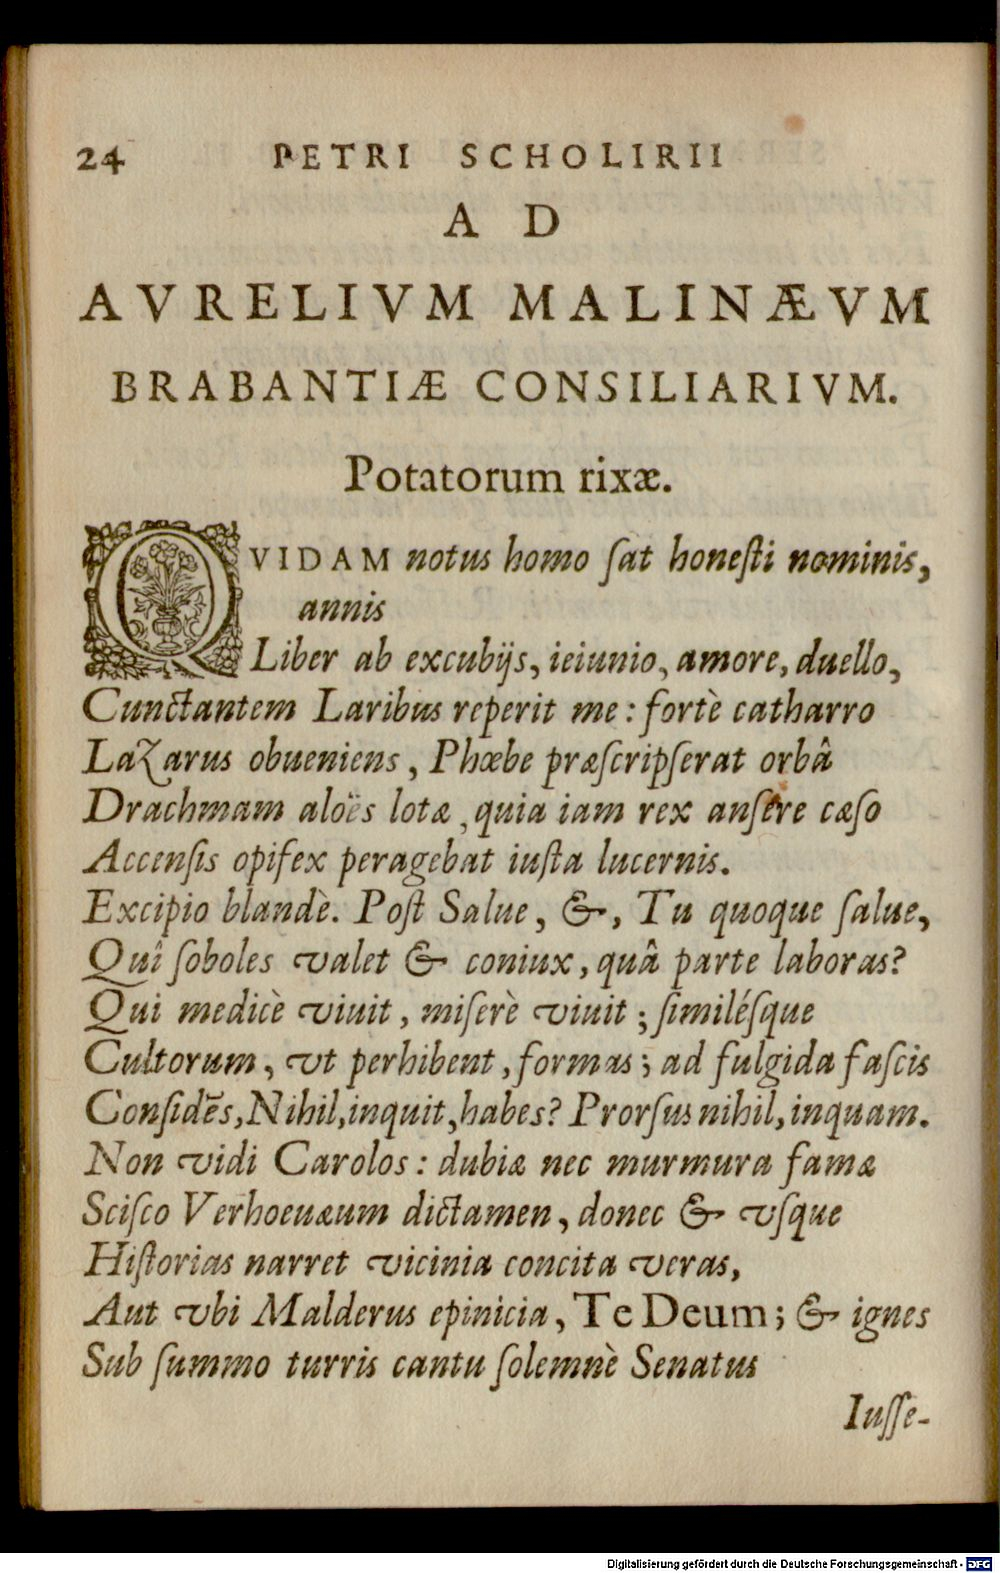 24 PETRI SCHOLIRII
AD
AVRELIVM MALINÆVM
BRABANTIÆ CONSILIARIVM.
Potatorum rixæ.
QVIDAM notus homo ſat honeſti nominis,
annis
Liber ab excubijs, ieiunio, amore, duello,
Cunctantem Laribus reperit me: fortè catharro
Lazarus obueniens, Phœbe præſcripſerat orbâ
Drachmam aloës lotæ, quia iam rex anſere cæſo
Accenſis opifex peragebat iuſta lucernis.
Excipio blandè. Poſt Salue, &, Tu quoque ſalue,
Quî ſoboles valet & coniux, quâ parte laboras?
Qui medicè viuit, miſerè viuit; ſimiléſque
Cultorum, vt perhibent, formas; ad fulgida faſcis
Conſidēs, Nihil, inquit, habes? Prorſus nihil, inquam.
Non vidi Carolos: dubiæ nec murmura famæ
Sciſco Verhoeuæum dictamen, donec & vſque
Hiſtorias narret vicinia concita veras,
Aut vbi Malderus epinicia, Te Deum; & ignes
Sub ſummo turris cantu ſolemnè Senatus
Iuſſe-
Digitalisierung gefördert durch die Deutsche Forschungsgemeinschaft - DFG